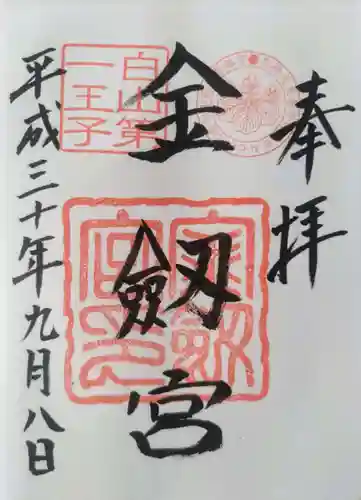 奉拝
金劔宮
白山第一王子
平成三十年九月八日